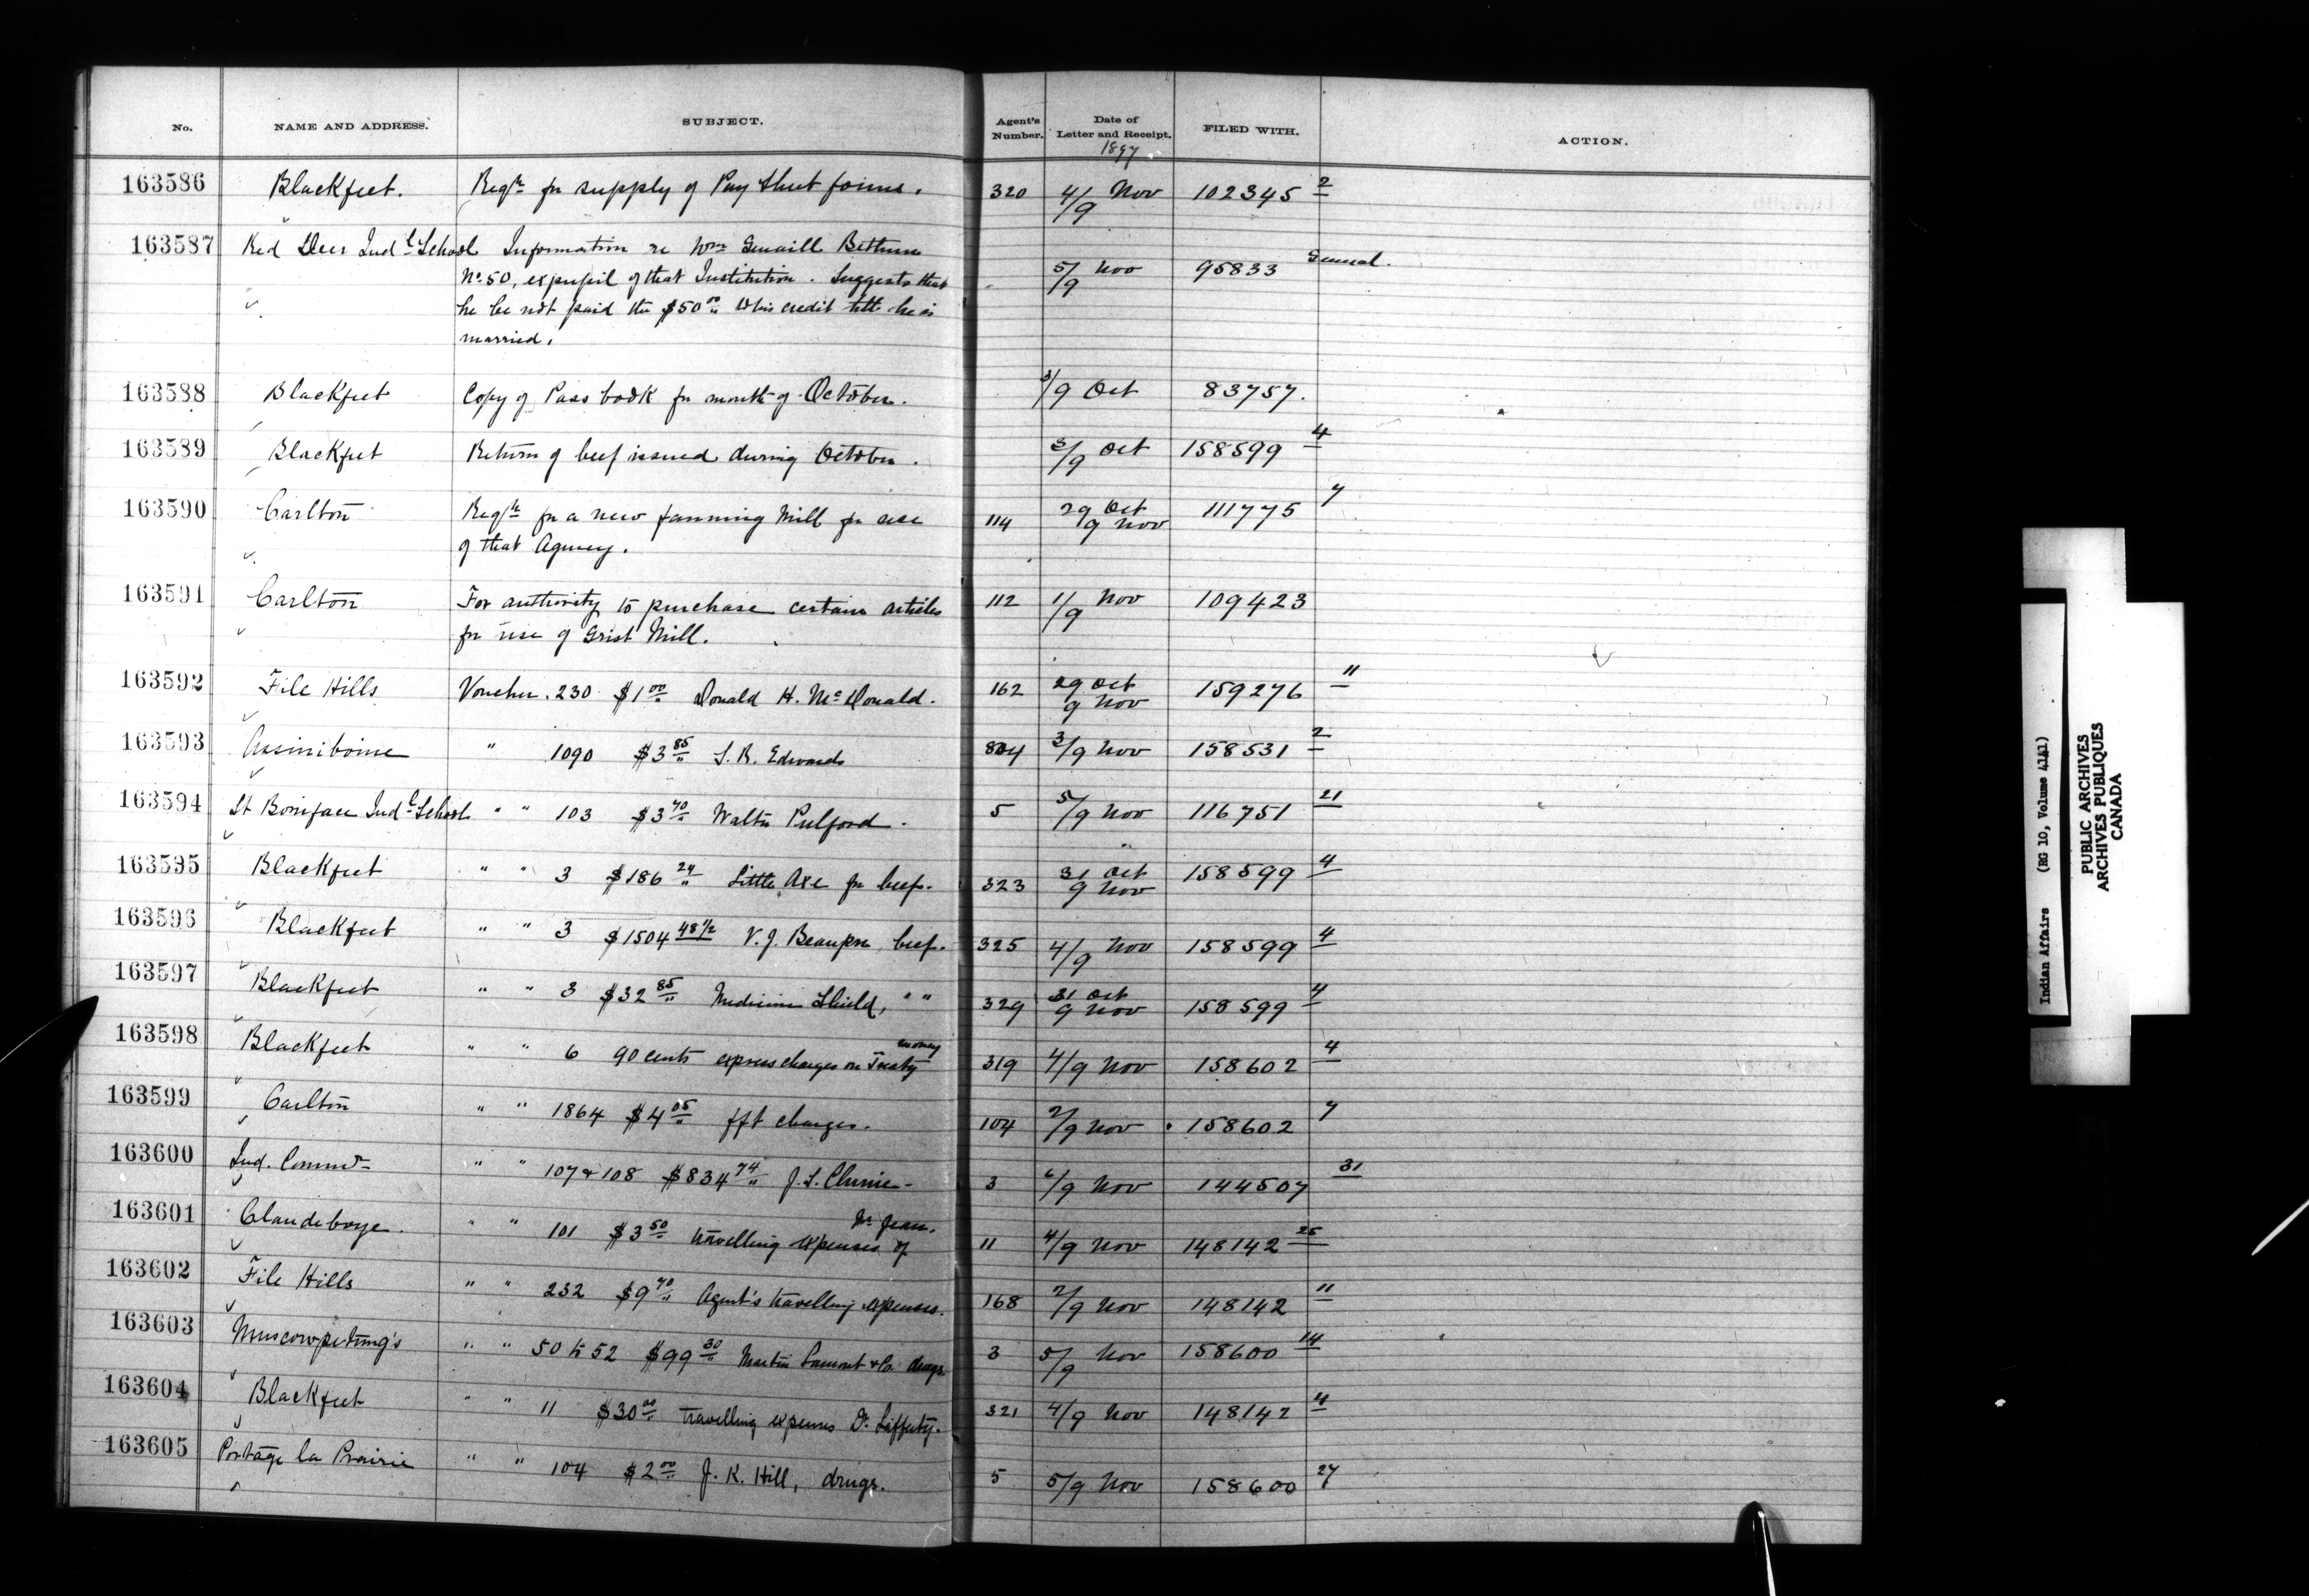 No. NAME AND ADDRESS. SUBJECT. Agent's Number. Date of Letter and Receipt. FILED WITH. ACTION.
1897
163586 Blackfeet. Reqⁿ for supply of Pay Sheet forms. 320 4/9 Nov 102345 2
163587 Red Deer Indˡ School Information re Wm Bethune
Nº 50, expupil of that Institution. Suggests that 5/9 Nov 95833 General.
he be not paid the $50 00 to his credit till he is
married.
163588 Blackfeet Copy of Pass book for month of October. 3/9 Oct 83757.
163589 Blackfeet Return of beef issued during October. 3/9 Oct 158599 4
163590 Carlton Reqⁿ for a new fanning Mill for use 114 29 Oct 9 Nov 111775 7
of that Agency.
163591 Carlton For authority to purchase certain articles 112 1/9 Nov 109423
for use of Grist Mill.
163592 File Hills Voucher. 230 $1 00 Donald H. Mc Donald. 162 29 Oct 9 Nov 159276 11
163593 Assiniboine " 1090 $3 85 S. R. Edwards 804 3/9 Nov 158531 2
163594 St Boniface Indˡ School " " 103 $3 70 Walter Pulford. 5 5/9 Nov 116751 21
163595 Blackfeet " " 3 $186 24 Little Axe for beef. 323 31 Oct 9 Nov 158599 4
163596 Blackfeet " " 3 $1504 48½ V. J. Beaupre beef. 325 4/9 Nov 158599 4
163597 Blackfeet " " 3 $32 85 Medicine Shield, " " 329 31 Oct 9 Nov 158599 4
163598 Blackfeet " " 6 90 cents express charges on Treaty money 319 4/9 Nov 158602 4
163599 Carlton " " 1864 $4 05 fft charges. 104 2/9 Nov 158602 7
163600 Ind. Commr " " 107 & 108 $834 74 J. S. Clunie 3 6/9 Nov 144507 31
163601 Clandeboye. " " 101 $3 50 travelling expenses of 11 4/9 Nov 148142 25
163602 File Hills " " 232 $9 70 Agent's travelling expenses. 168 2/9 Nov 148142 11
163603 Muscowpetung's " " 50 to 52 $99 30 Martin Lamont & Co. drugs 3 5/9 Nov 158600 14
163604 Blackfeet " " 11 $30 00 travelling expenses Dr. Lafferty. 321 4/9 Nov 148142 4
163605 Portage la Prairie " " 104 $2 00 J. K. Hill, drugs. 5 5/9 Nov 158600 27
Indian Affairs (RG 10, Volume 4141)
PUBLIC ARCHIVES
ARCHIVES PUBLIQUES
CANADA